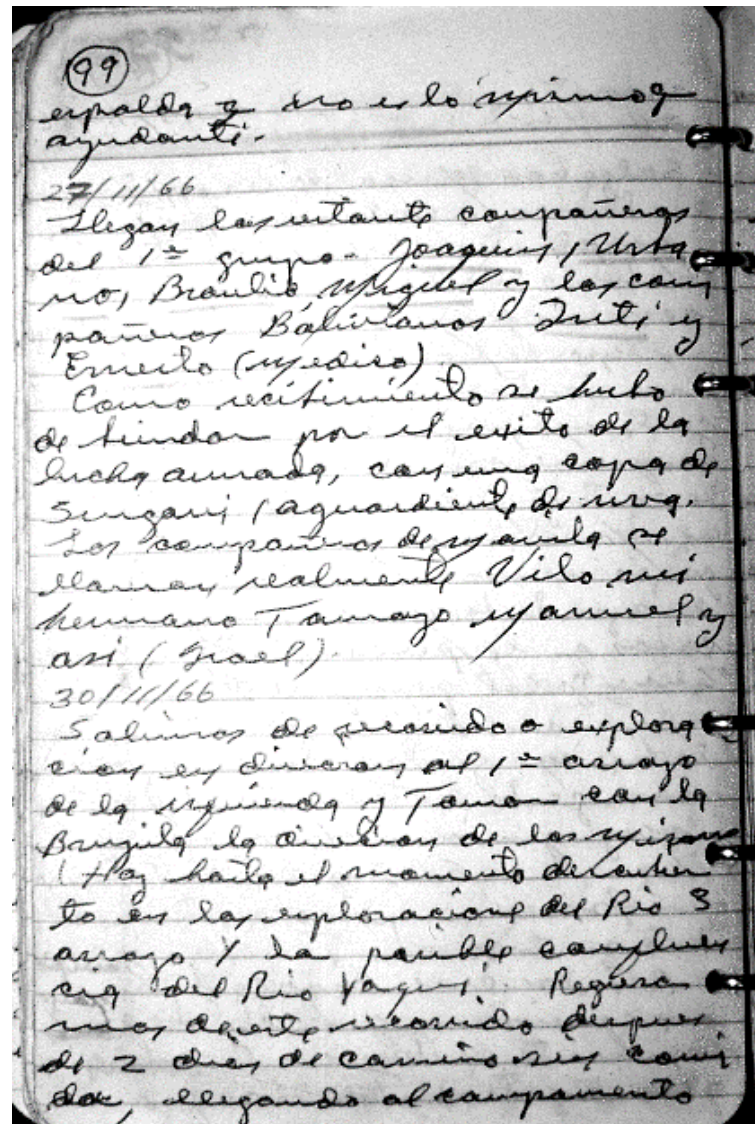 99
espalda y no es lo mismo q
ayudante.
27/11/66
Llegan los restante compañeros
del 1º grupo. Joaquin, Urba
no, Braulio, Miguel y los com
pañeros Bolivianos Inti y
Ernesto (mediso)
Como recibimiento se hubo
de brindar por el exito de la
lucha armada, con una copa de
Singani (aguardiente de uva.
Los compañeros de Manila se
llaman realmente Vilo mi
hermano Tamayo Manuel y
asi (Israel).
30/11/66
Salimos de recorrido o explora
cion en direcion al 1º arroyo
de la isquierda y Tomar con la
Brujula la direcion de los mismo
(Hay hasta el momento descubier
to en las exploracione del Rio 3
arroyo y la posible confluen
cia del Rio Yaqui. Regresa
mos de este recorrido despues
de 2 dias de camino sin comi
da, llegando al campamento